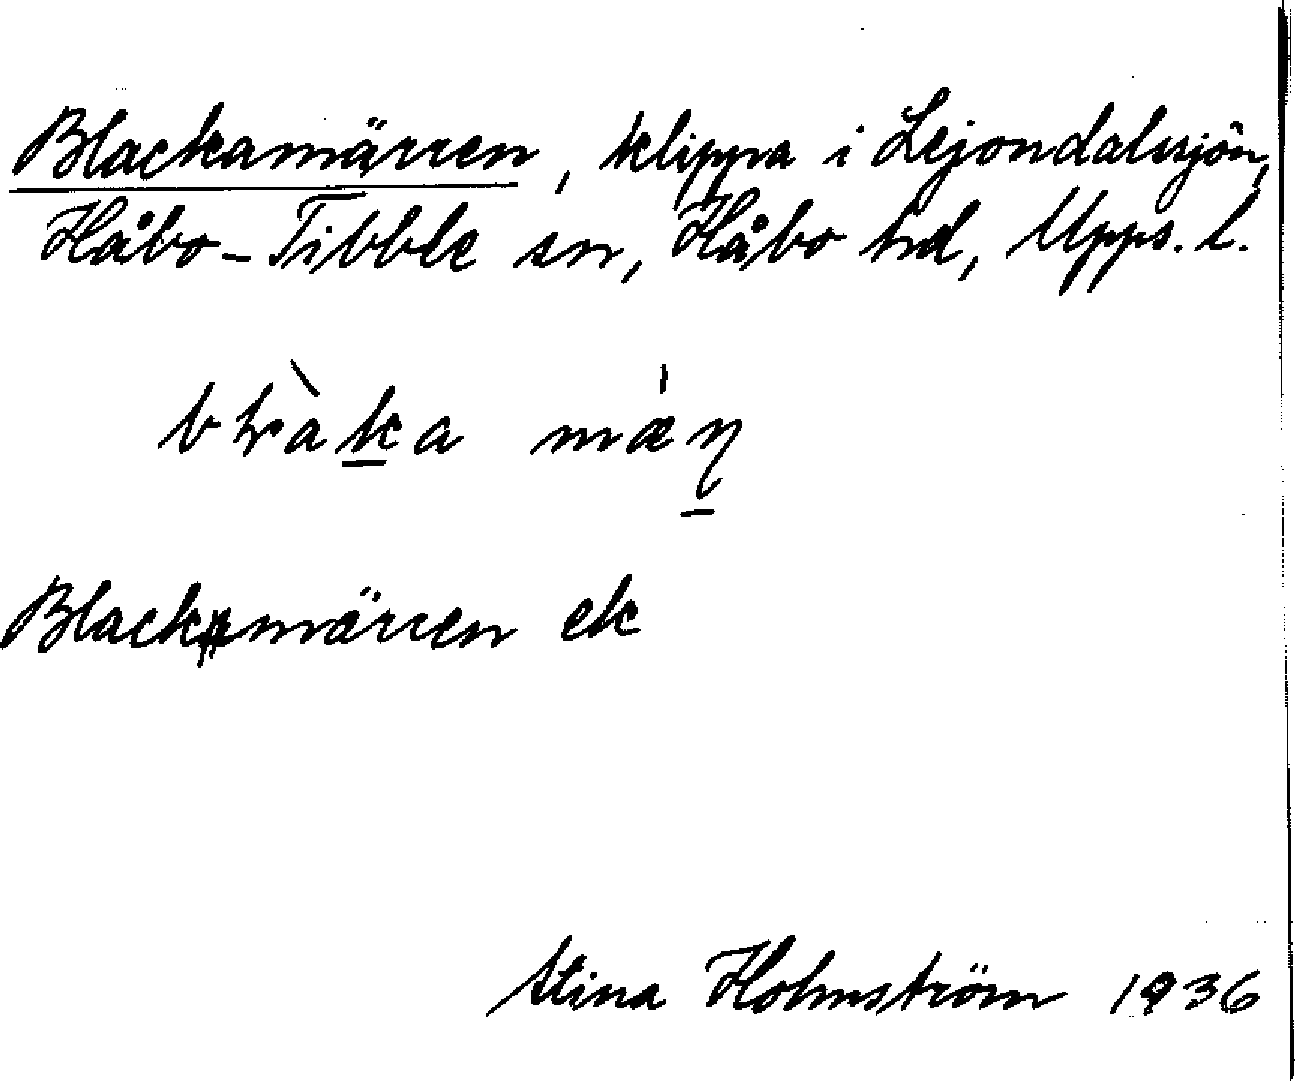 Blackamärren, klippa i Lejondalssjön,
Håbo-Tibble sn, Håbo hd, Upps. l.
Blackamärren ek
Stina Holmström 1936